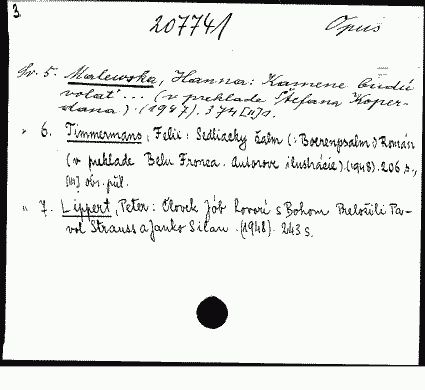 3.
20774/1 Opus
Sv. 5. Malewska, Hanna: Kamene budú
volať ... (v preklade Štefana Koper-
dana). (1947). 374 [II] s.
„ 6. Timmermans, Felix: Sedliacky žalm (: Boerenpsalm:) Román
(v preklade Bélu Fronca. Autorove ilustrácie). (1948). 206 s.,
obr. príl.
„ 7. Lippert, Peter: Človek Jób hovorí s Bohom Preložili Pa-
vol Strauss a Janko Silan. (1948). 243 s.